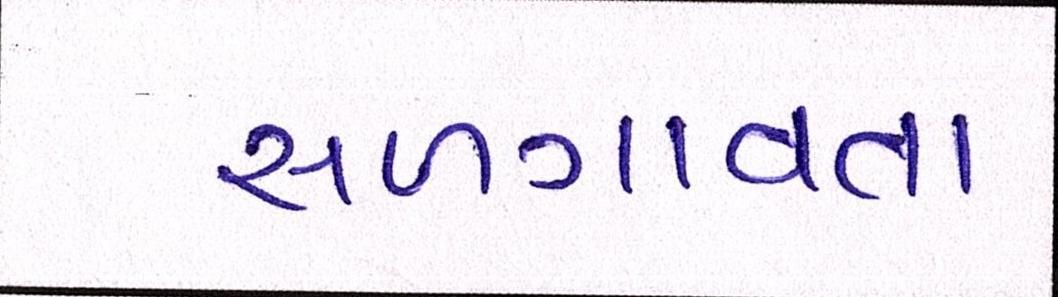 સળગાવતા